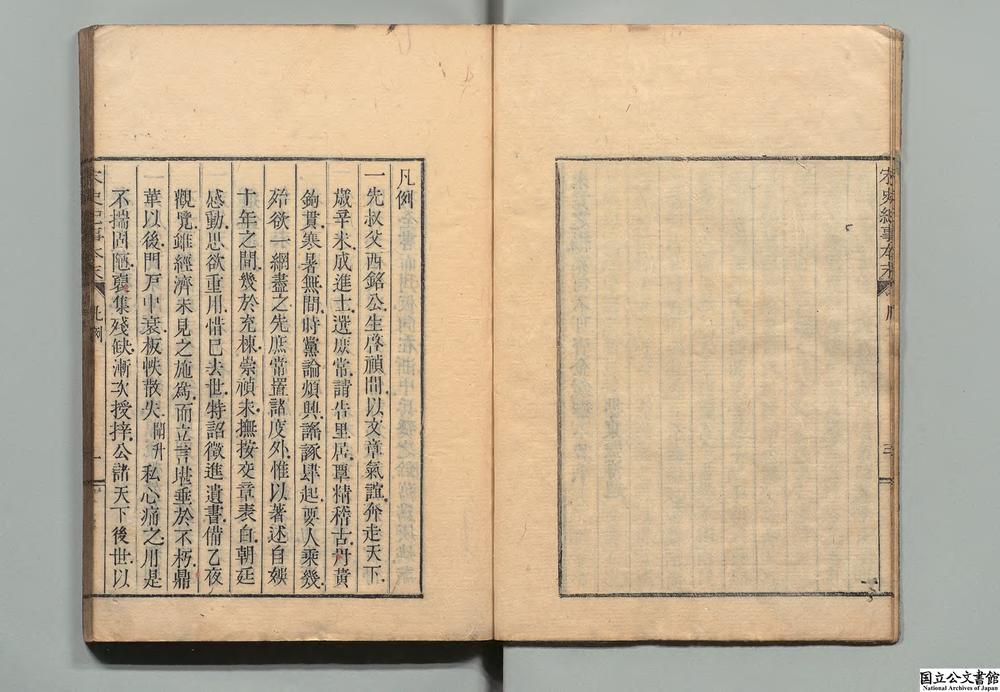 宋史紀事本末
序
三
凡例
一先叔父西銘公生啓禎間以文章氣誼奔走天下
歲辛未成進士選庶常請告里居覃精稽古丹黃
鉤貫寒暑無間時黨論頻興謠諑肆起要人乘幾
殆欲一網盡之先庶常置諸度外惟以著述自娛
十年之間幾於充棟崇禎末撫按交章表自朝廷
感動思欲重用惜已去世特詔徵進遺書備乙夜
觀覽雖經濟未見之施爲而立言堪垂於不朽鼎
一華以後門戶中衰板帙散失闇升私心痛之用是
不揣固陋裒集殘缺漸次授梓公諸天下後世以
宋史紀事本末
凡例
一
国立公文書館
National Archives of Japan